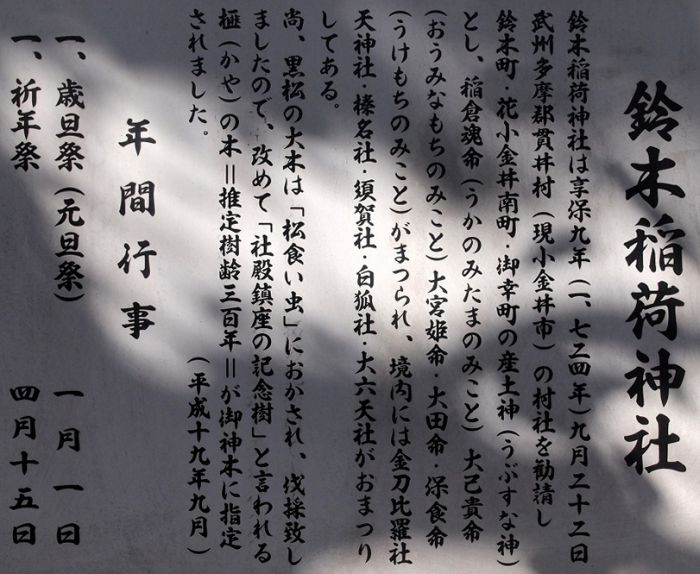 鈴木稲荷神社
鈴木稲荷神社は享保九年(一、七二四年)九月二十二日
武州多摩郡貫井村(現小金井市)の村社を勧請し
鈴木町・花小金井南町・御幸町の産土神(うぶすな神)
とし、稲倉魂命(うかのみたまのみこと)大己貴命
(おうみなもちのみこと)大宮姫命・大田命・保食命
(うけもちのみこと)がまつられ、境内には金刀比羅社
天神社・榛名社・須賀社・白狐社・大六天社がおまつり
してある。
尚、黒松の大木は「松食い虫」におかされ、伐採致し
ましたので、改めて「社殿鎮座の記念樹」と言われる
榧(かや)の木＝推定樹齢三百年＝が御神木に指定
されました。
(平成十九年九月)
年間行事
一、歳旦祭(元旦祭) 一月一日
一、祈年祭 四月十五日